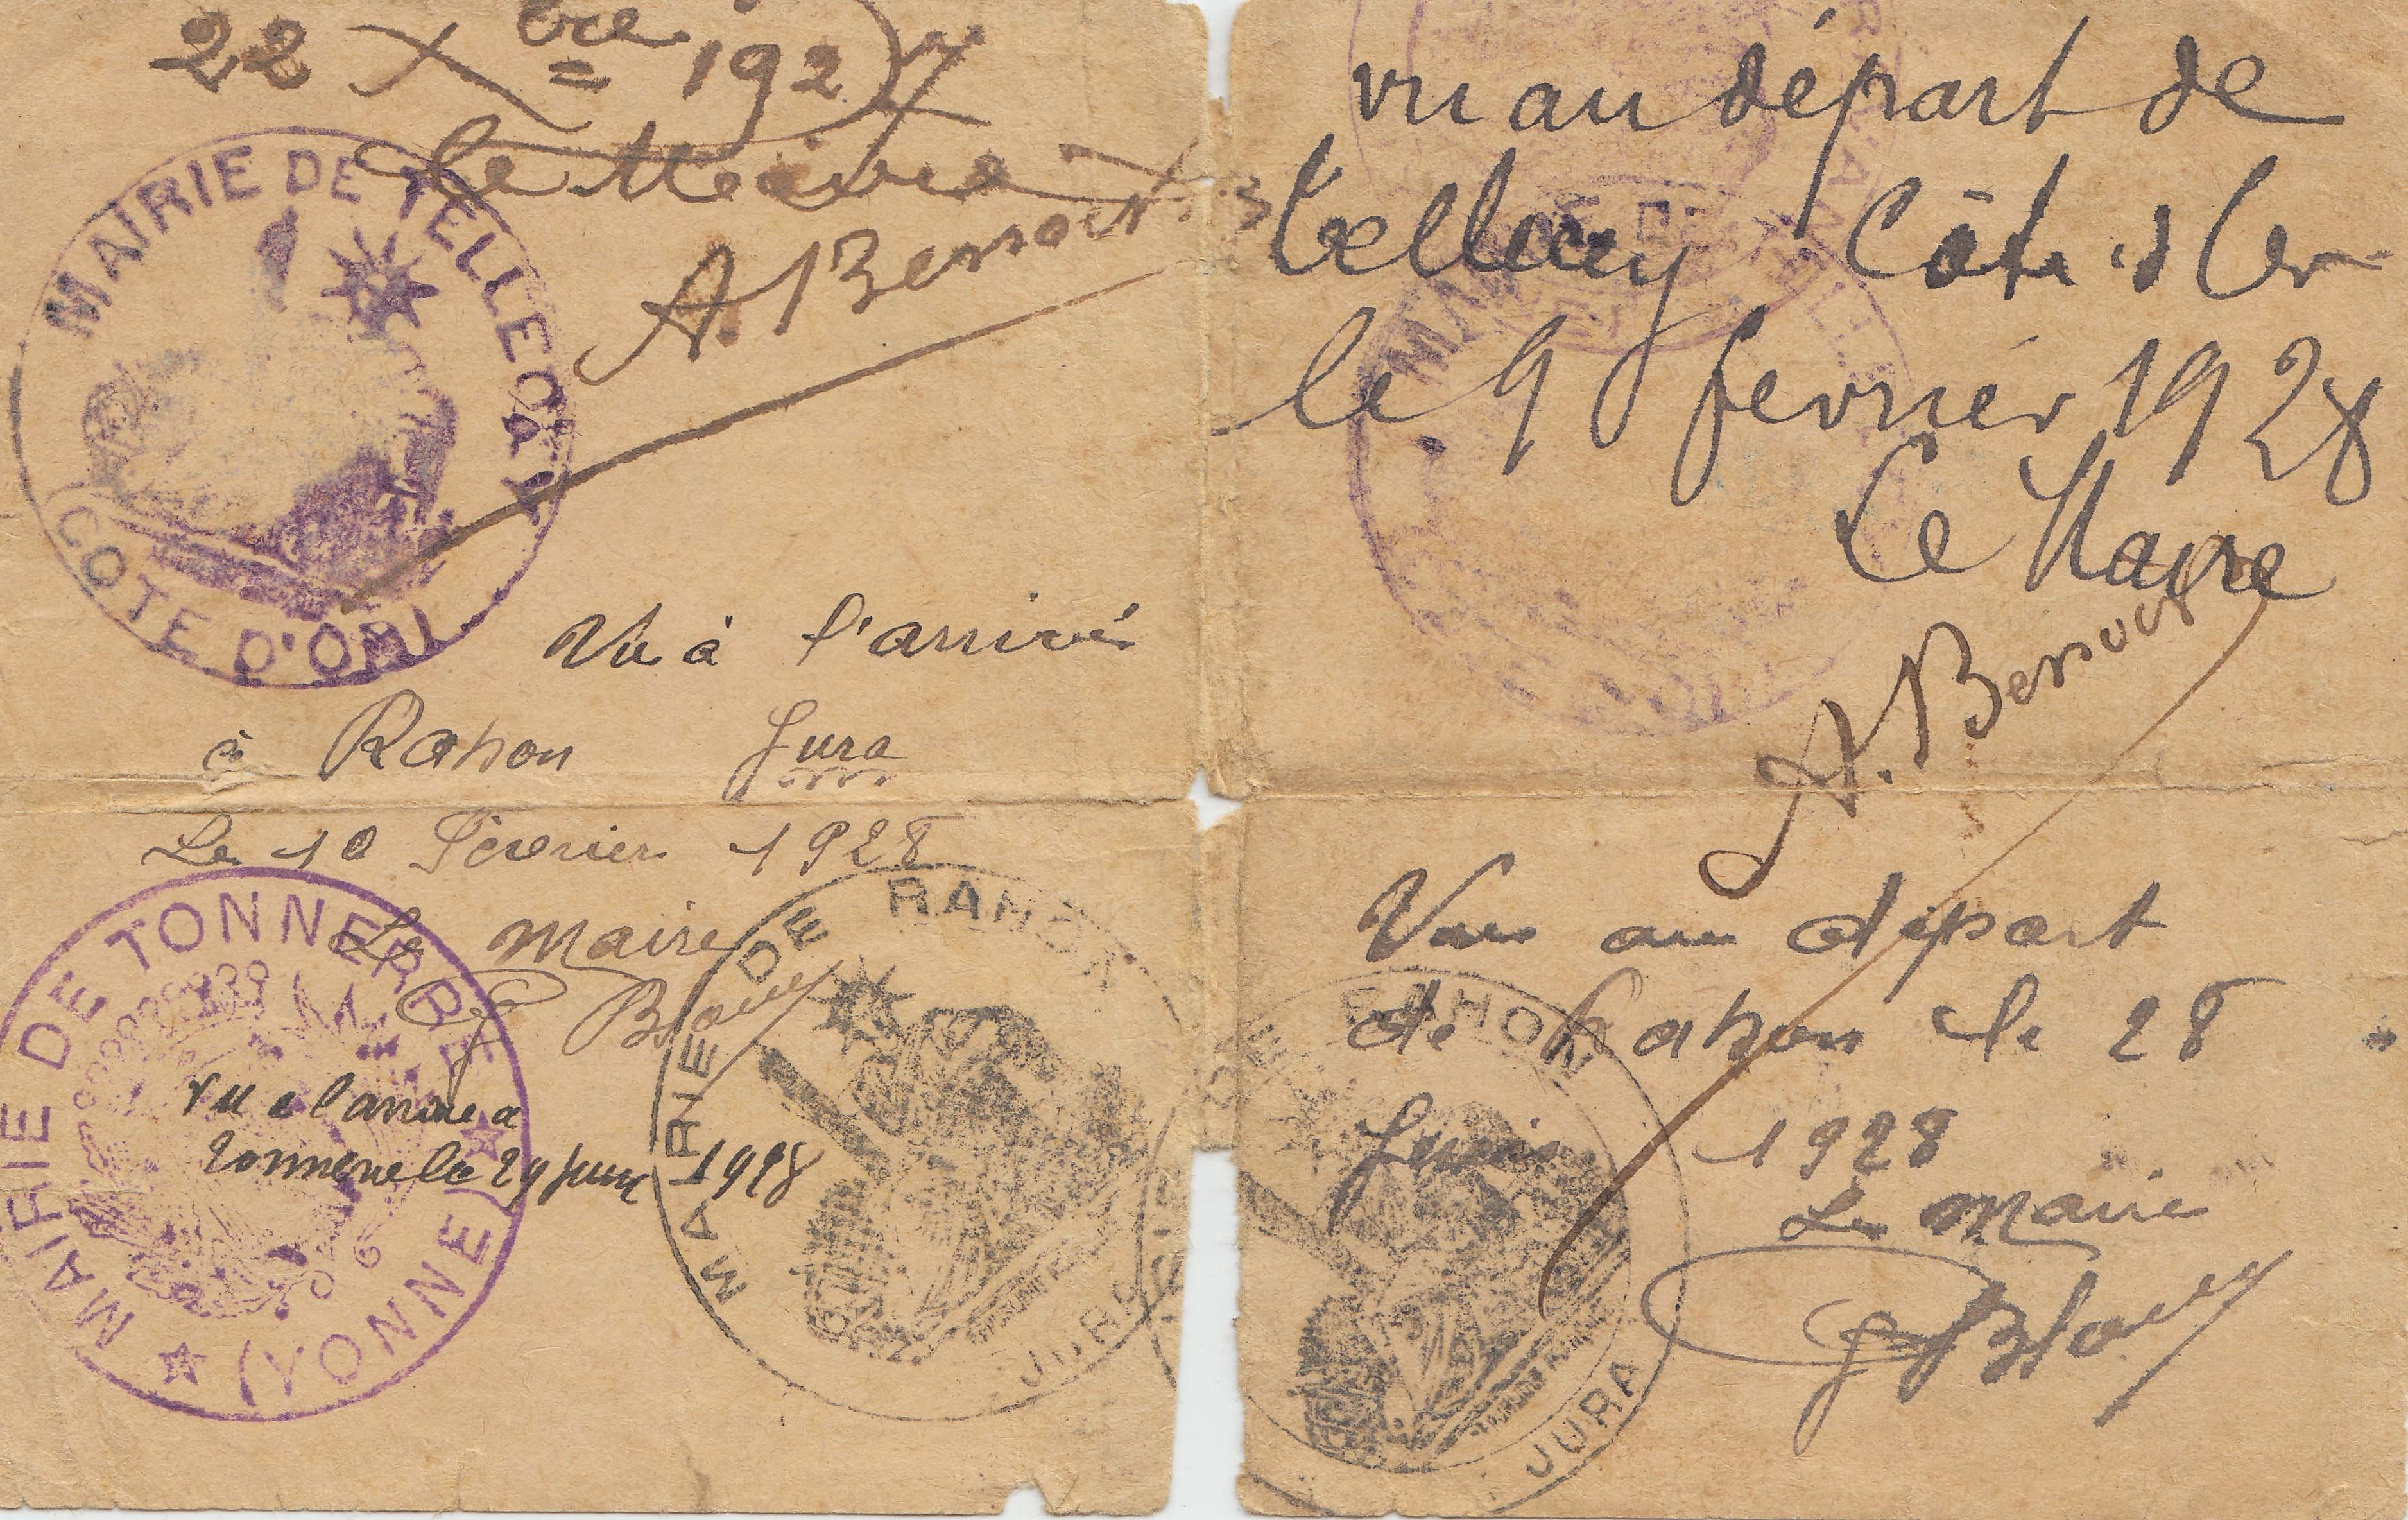 22 Xbre 1927
Le Maire
A. Bersouit
MAIRIE DE TELLECEY
COTE D'OR
Vu à l'arrivé
à Rahon Jura
Le 10 Février 1928
Le Maire
MAIRIE DE RAHON
JURA
MAIRIE DE TONNERRE
(YONNE)
vu a l'arrivée a
Tonnerre le 29 juin 1928
vu au départ de
Tellecey Côte d'Or
le 9 février 1928
Le Maire
A. Bersouit
MAIRIE DE TELLECEY
Vu au départ
de Rahon le 28
Juin 1928
Le Maire
MAIRIE DE RAHON
JURA